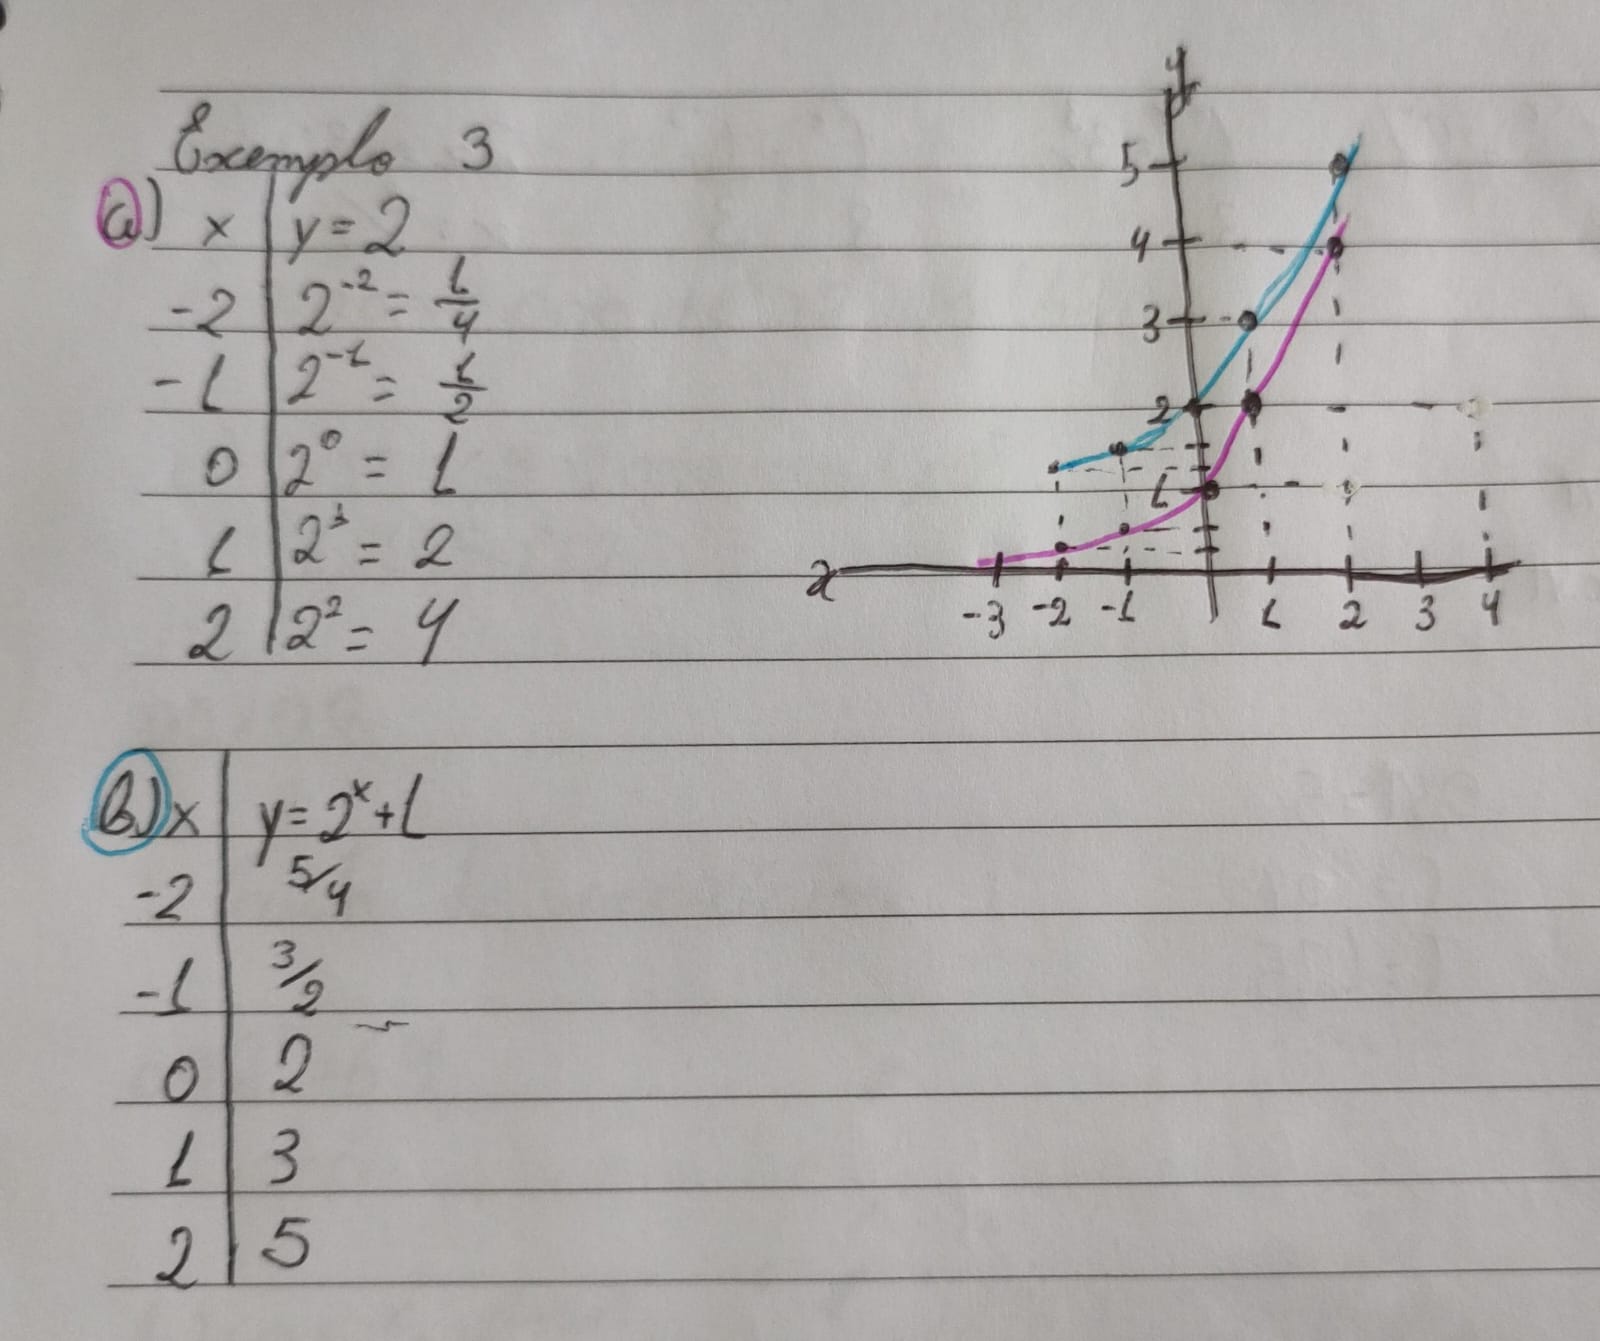 Exemplo 3
a) x | y = 2
-2 | 2^-2 = 1/4
-1 | 2^-1 = 1/2
0 | 2^0 = 1
1 | 2^1 = 2
2 | 2^2 = 4
y
5
4
3
2
1
x -3 -2 -1 1 2 3 4
b) x | y = 2^x + 1
-2 | 5/4
-1 | 3/2
0 | 2
1 | 3
2 | 5